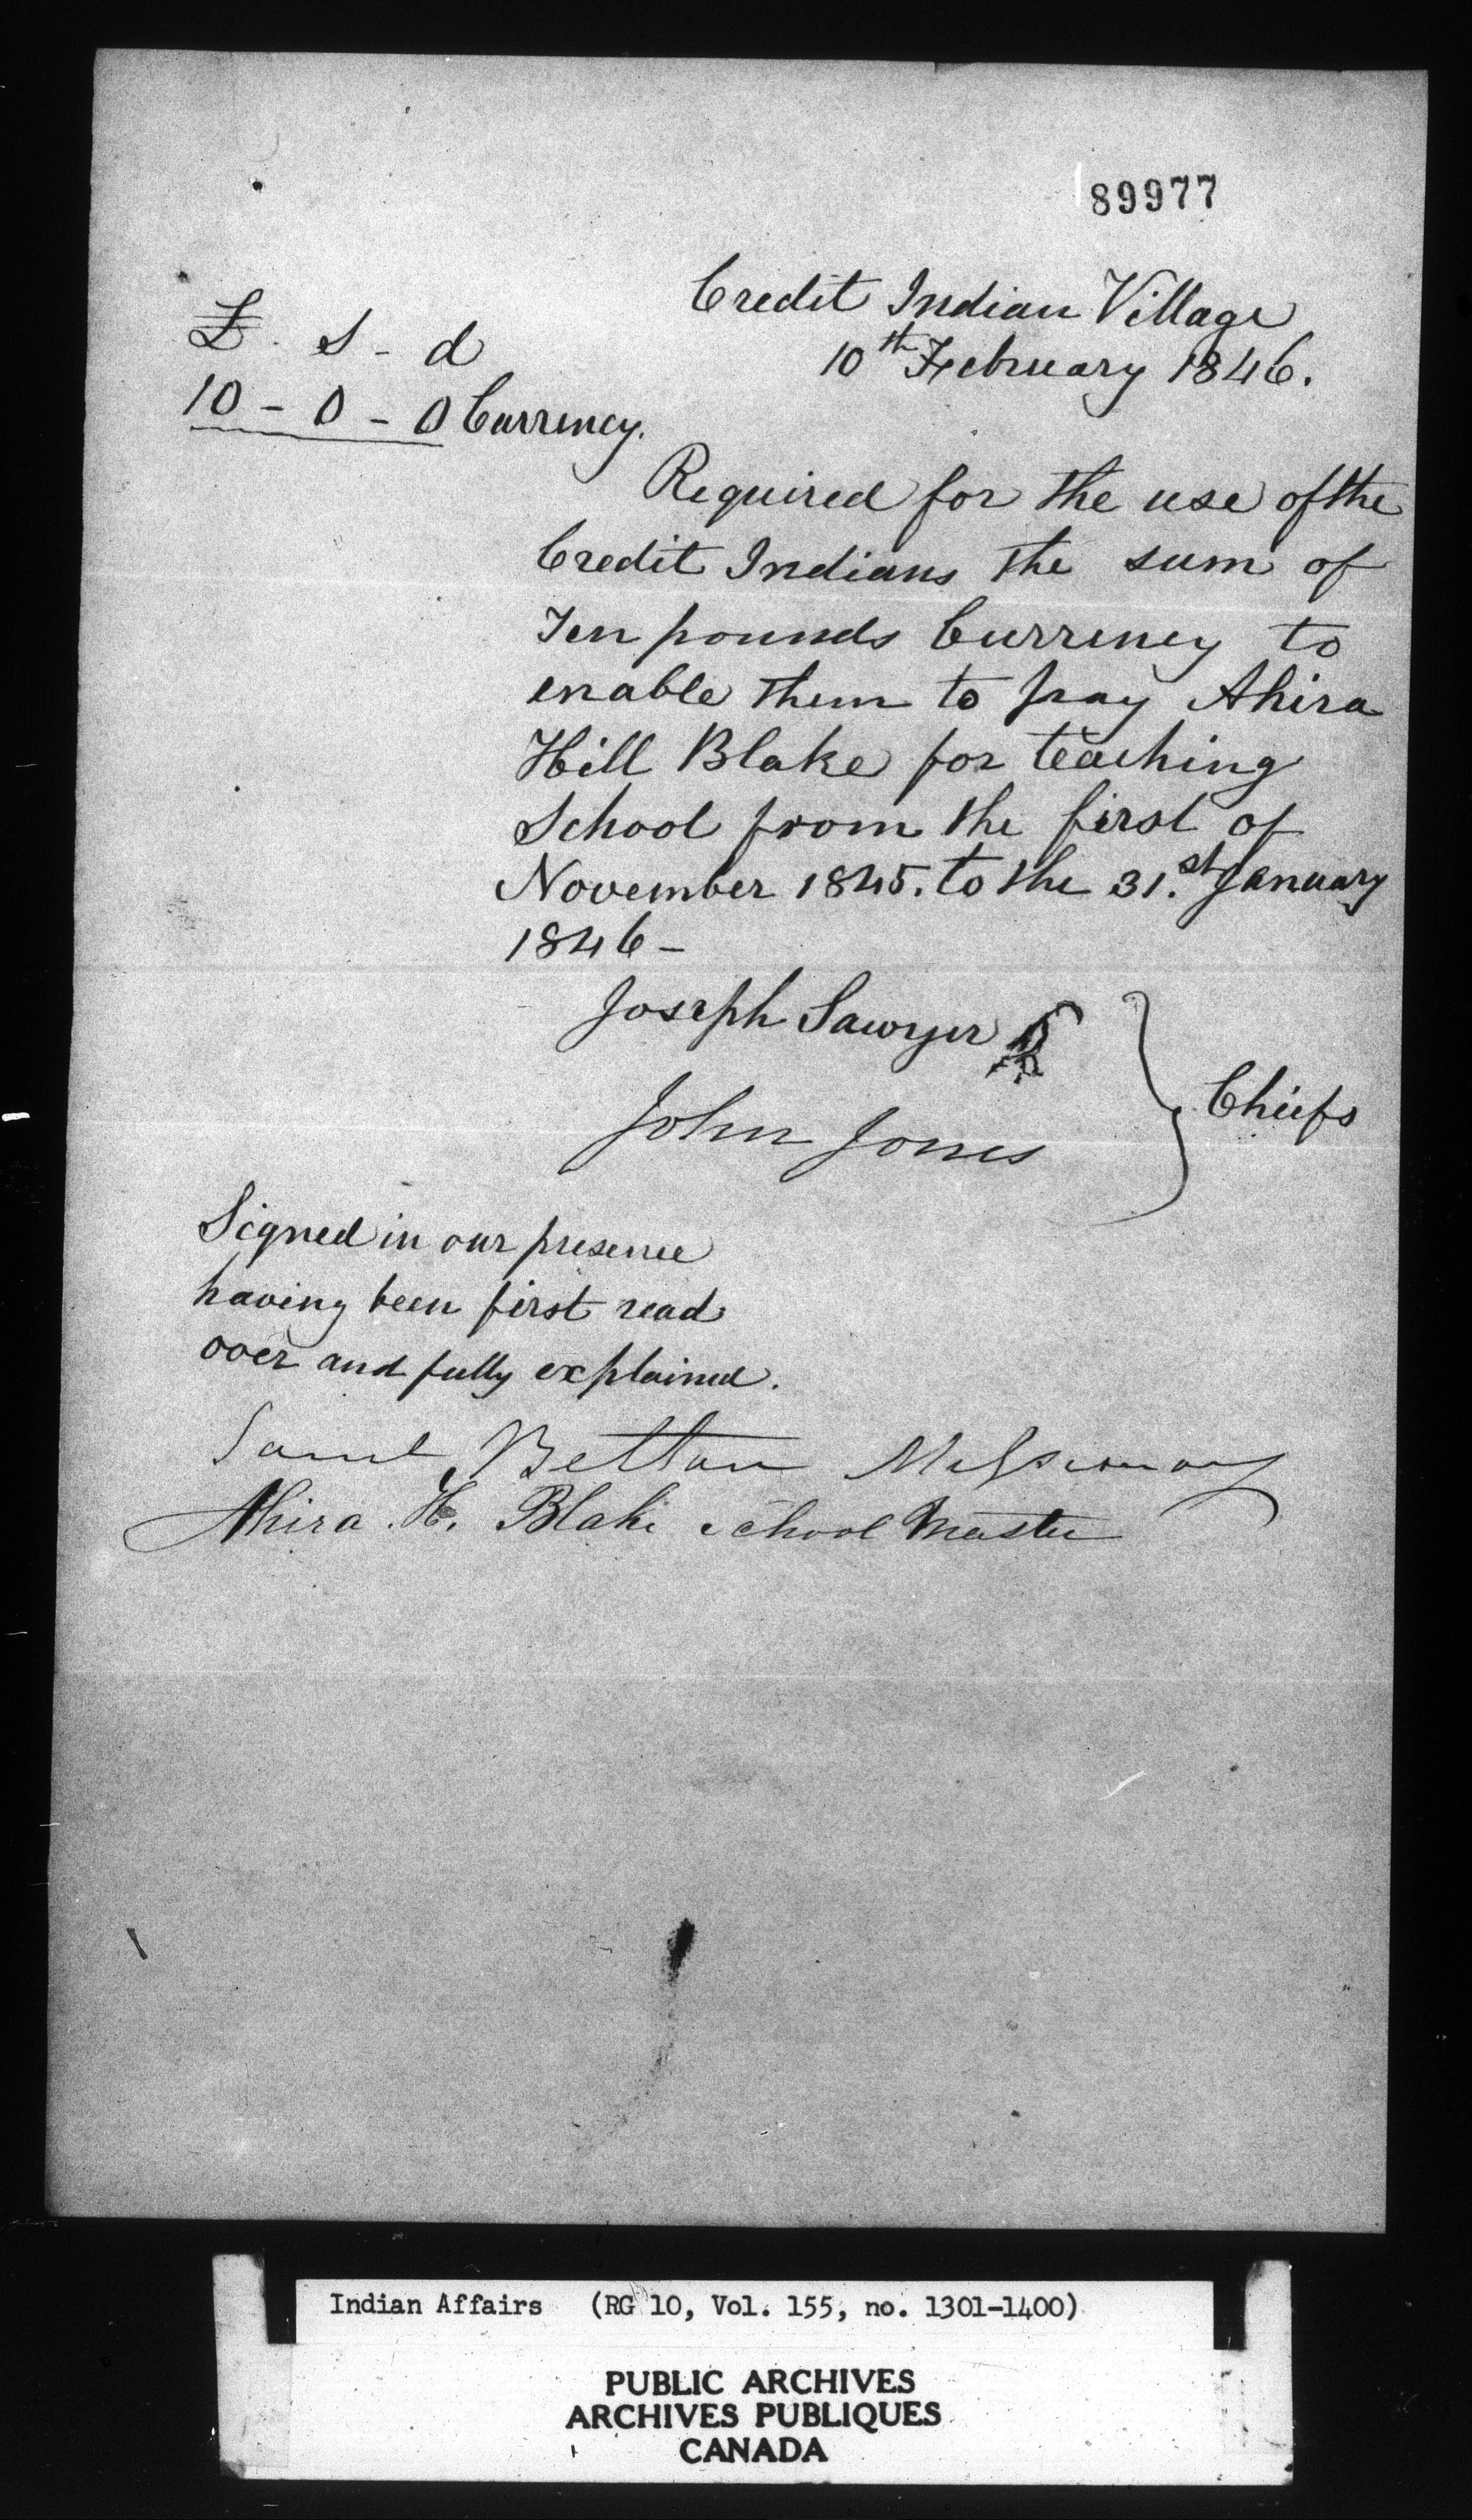 89977
Credit Indian Village
10th February 1846.
£. S - d
10 - 0 - 0 Currency.
Required for the use of the
Credit Indians the sum of
Ten pounds Currency to
enable them to pay Ahira
Hill Blake for teaching
School from the first of
November 1845. to the 31.st January
1846 -
Joseph Sawyer
John Jones
Chiefs
Signed in our presence
having been first read
over and fully explained.
Saml Belton Missionary
Ahira. H. Blake School Master
Indian Affairs (RG 10, Vol. 155, no. 1301-1400)
PUBLIC ARCHIVES
ARCHIVES PUBLIQUES
CANADA